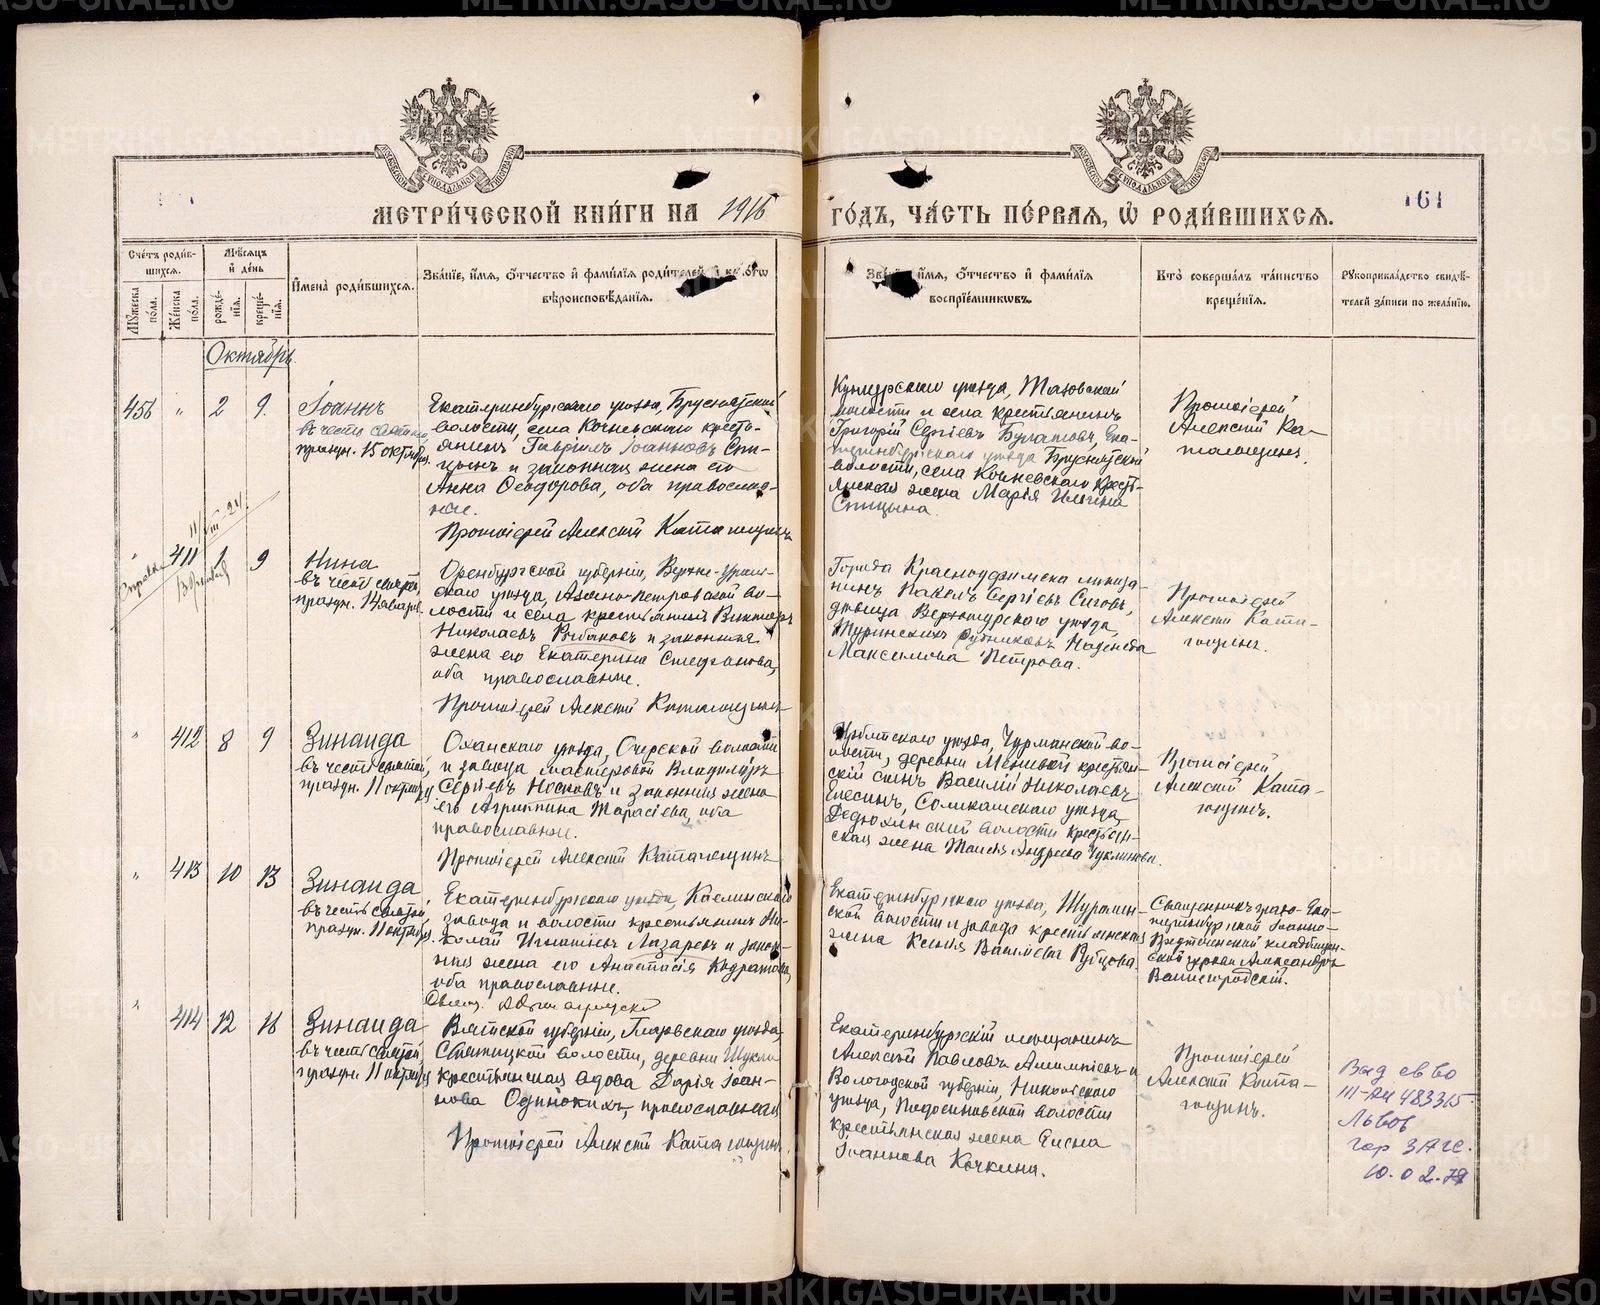 МЕТРИЧЕСКОЙ КНИГИ НА 1916
ГОДЪ, ЧАСТЬ ПЕРВАЯ, Ѡ РОДИВШИХСЯ.
161
Счетъ родив-
шихся.
Мѣсяцъ
и день
Мужеска
пола.
Женска
пола.
рожде-
нія.
креще-
нія.
Имена родившихся.
Званіе, имя, отчество и фамилія родителей и
вѣроисповѣданія.
имя, отчество и фамилія
воспріемниковъ.
Кто совершалъ таинство
крещенія.
Рукоприкладство свидѣ-
телей записи по желанію.
Октябрь.
456 " 2 9.
Іоаннъ
въ честь
праздн. 15 октября.
Екатеринбургскаго уѣзда, Бруснятской
волости, села Кочневскаго кресть-
янинъ Гавріилъ Іоанновъ Спи-
цынъ и законная жена его
Анна Ѳеодорова, оба православ-
ные.
Протоіерей Алексій
Кунгурскаго уѣзда, Тазовской
волости и села крестьянинъ
Григорій Сергѣевъ Булатовъ, Ека-
теринбургскаго уѣзда Бруснятской
волости, села Кочневскаго кресть-
янская жена Марія Ильина
Спицына.
Протоіерей
Алексій Ка-
тагощинъ.
" 411 1 9
Справка
Нина
въ честь святой,
праздн. 14 января.
Оренбургской губерніи, Верхне-ураль-
скаго уѣзда, Авзяно-Петровской во-
лости и села крестьянинъ Викторъ
Николаевъ Рыбаковъ и законная
жена его Екатерина Стефанова,
оба православные.
Протоіерей Алексій Катагощинъ
Города Красноуфимска мѣща-
нинъ Павелъ Сергіевъ Сиговъ,
дѣвица Верхотурскаго уѣзда,
Туринскихъ рудниковъ Надежда
Максимова Петрова.
Протоіерей
Алексій Ката-
гощинъ.
" 412 8 9
Зинаида
въ честь святой,
праздн. 11 октября
Оханскаго уѣзда, Очерской волости
и завода мастеровой Владиміръ
Сергіевъ Носковъ и законная жена
его Агриппина Тарасіева, оба
православные.
Протоіерей Алексій Катагощинъ
уѣзда, во-
лости, деревни крестьян-
скій сынъ Василій Николаевъ
Елесинъ, Соликамскаго уѣзда,
Дедюхинской волости крестьян-
ская жена Таисія Андреева Чуклинова.
Протоіерей
Алексій Ката-
гощинъ.
" 413 10 13
Зинаида
въ честь святой,
праздн. 11 октября
Екатеринбургскаго уѣзда, Каслинскаго
завода и волости крестьянинъ Ни-
колай Игнатіевъ Лазаревъ и закон-
ная жена его Анастасія Кодратова,
оба православные.
Екатеринбургскаго уѣзда,
ской волости и завода крестьянская
жена Ксенія Васильева Рубцова.
Священникъ градо-Ека-
теринбургской Іоанно-
Предтеченской кладбищен-
ской церкви Александръ
" 414 12 16
Зинаида
въ честь святой,
праздн. 11 октября
Вятской губерніи, Глазовскаго уѣзда,
волости, деревни
крестьянская вдова Дарія Іоан-
нова Одинокихъ, православная
Протоіерей Алексій Катагощинъ.
Екатеринбургскій мѣщанинъ
Алексѣй Павловъ Алимпіевъ и
Вологодской губерніи, Никольскаго
уѣзда, Подосиновской волости
крестьянская жена Елена
Іоаннова Кочкина.
Протоіерей
Алексій Ката-
гощинъ.
Выд св во
III-АИ 483315
Львов
гор ЗАГС.
METRIKI.GASO-URAL.RU